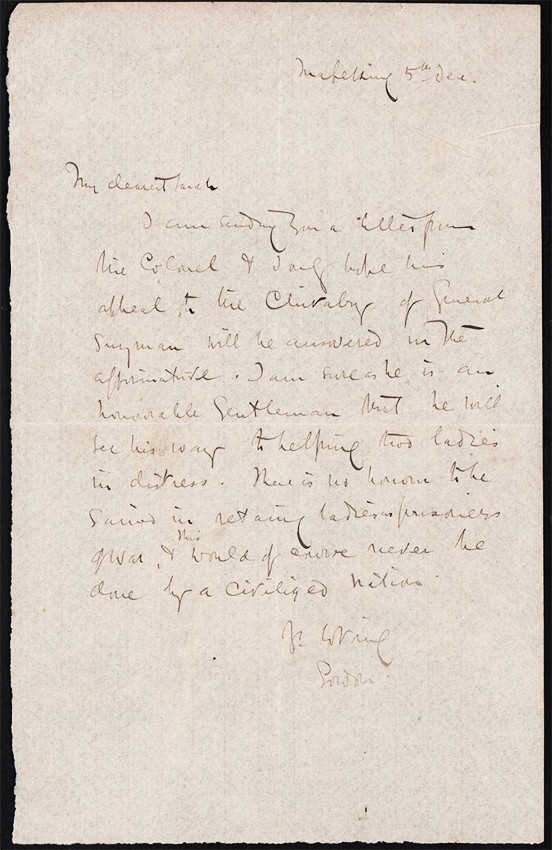 Mafeking 5th Dec.
My dearest Sarah
I am sending you a letter from
the Colonel & I only hope his
appeal to the Chivalry of General
Snyman will be answered in the
affirmative. I am sure as he is an
honourable Gentleman that he will
see his way to helping two ladies
in distress. There is no honour to be
gained in retaing ladies as prisoners
of war, & this would of course never be
done by a civilized nation.
Yr loving
Gordon